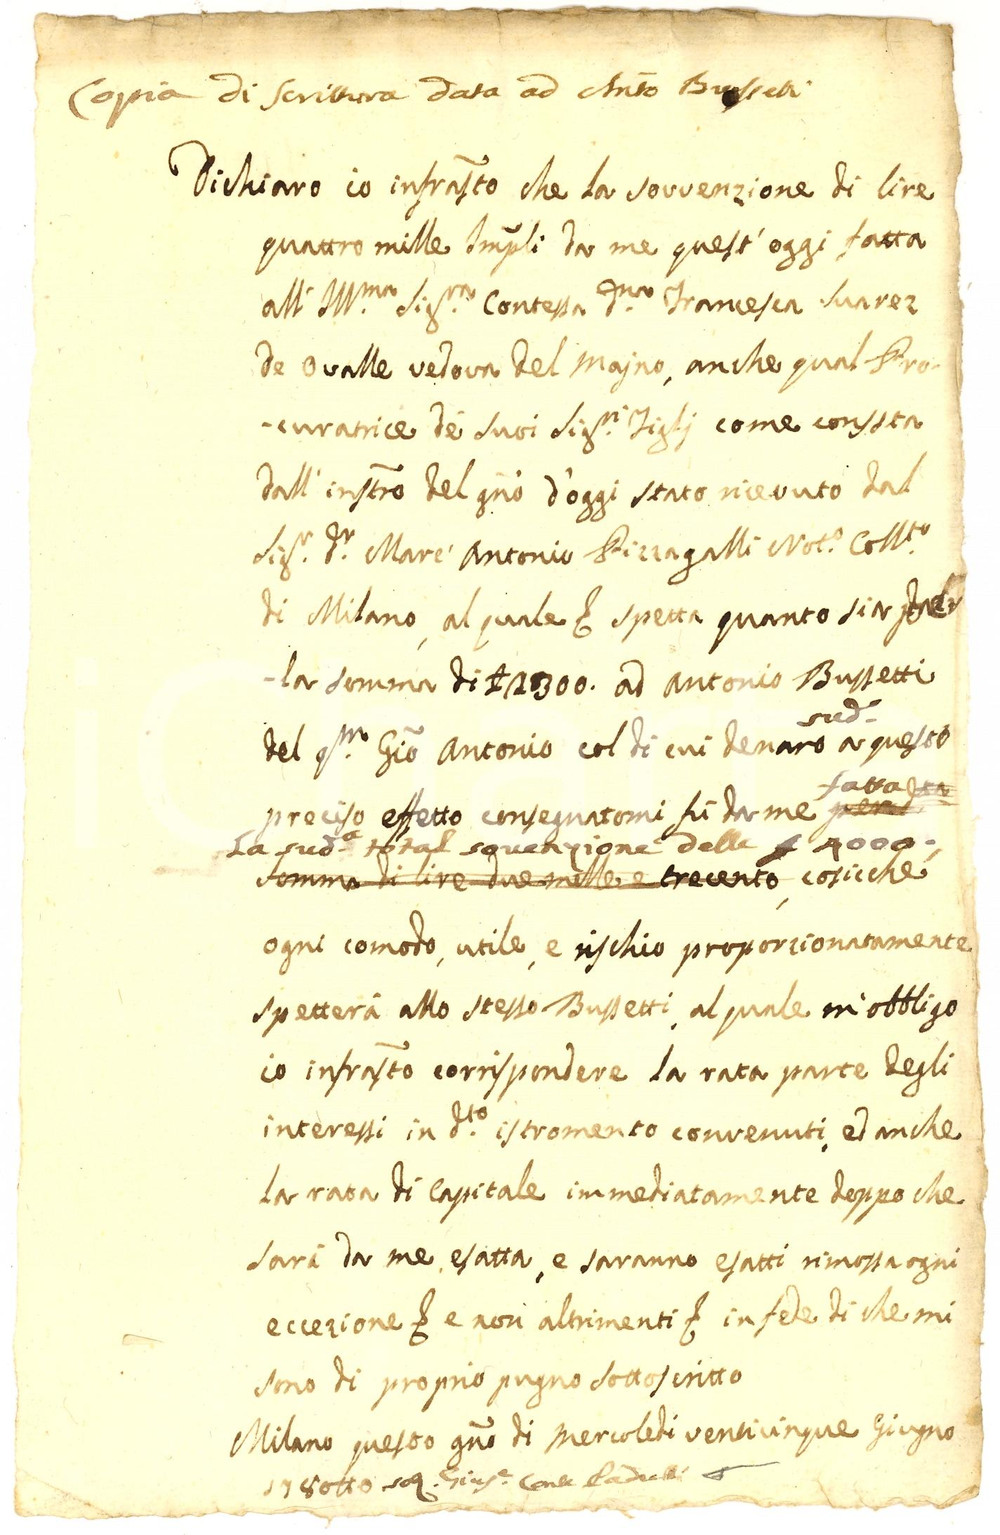 Copia di Scrittura data ad Anto Bussetti
Dichiaro io infrasto che la sovvenzione di lire
quattro mille Impli da me quest' oggi fatta
all' Ill.ma Sig.ra Contessa D.na Francesca Suarez
de Ovalle vedova del Majno, anche qual Pro-
-curatrice de Suoi Sig.ri Figlj come consta
dall' instro del gño d'oggi stato ricevuto dal
Sig.r D.r Marc' Antonio Pizzagalli Not.o Coll.to
di Milano, al quale spetta quanto sia per
-la somma di £ 2300. ad Antonio Bussetti
del q.m Gio Antonio col di cui denaro a questo
sud.
preciso effetto consegnatomi fu da me
fatta
La sud.a total sovenzione delle £ 4000.,
somma di lire due mille e trecento, cosicchè
ogni comodo, utile, e rischio proporzionatamente
spetterà allo stesso Bussetti, al quale m'obbligo
io infrasto corrispondere la rata parte degli
interessi in d.to istromento convenuti, ed anche
la rata di Capitale immediatamente doppo che
sarà da me esatta, e saranno esatti rimossa ogni
eccezione e non altrimenti in fede di che mi
sono di proprio pugno sottoscritto
Milano questo gño di Mercoledi venticinque Giugno
178otto Gius.e Conte